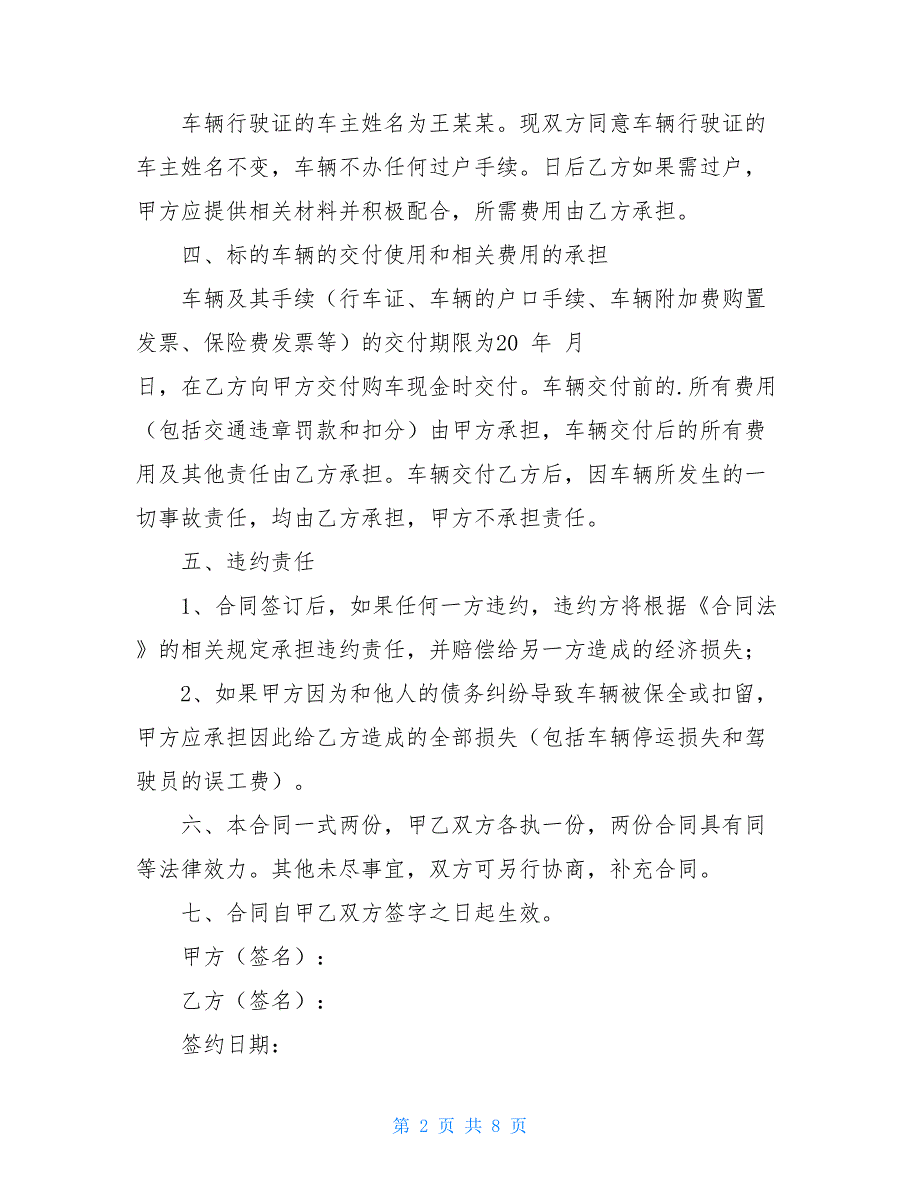 车辆行驶证的车主姓名为王某某。现双方同意车辆行驶证的
车主姓名不变，车辆不办任何过户手续。日后乙方如果需过户，
甲方应提供相关材料并积极配合，所需费用由乙方承担。
四、标的车辆的交付使用和相关费用的承担
车辆及其手续（行车证、车辆的户口手续、车辆附加费购置
发票、保险费发票等）的交付期限为20 年 月
日，在乙方向甲方交付购车现金时交付。车辆交付前的.所有费用
（包括交通违章罚款和扣分）由甲方承担，车辆交付后的所有费
用及其他责任由乙方承担。车辆交付乙方后，因车辆所发生的一
切事故责任，均由乙方承担，甲方不承担责任。
五、违约责任
1、合同签订后，如果任何一方违约，违约方将根据《合同法
》的相关规定承担违约责任，并赔偿给另一方造成的经济损失；
2、如果甲方因为和他人的债务纠纷导致车辆被保全或扣留，
甲方应承担因此给乙方造成的全部损失（包括车辆停运损失和驾
驶员的误工费）。
六、本合同一式两份，甲乙双方各执一份，两份合同具有同
等法律效力。其他未尽事宜，双方可另行协商，补充合同。
七、合同自甲乙双方签字之日起生效。
甲方（签名）：
乙方（签名）：
签约日期：
第 2 页 共 8 页